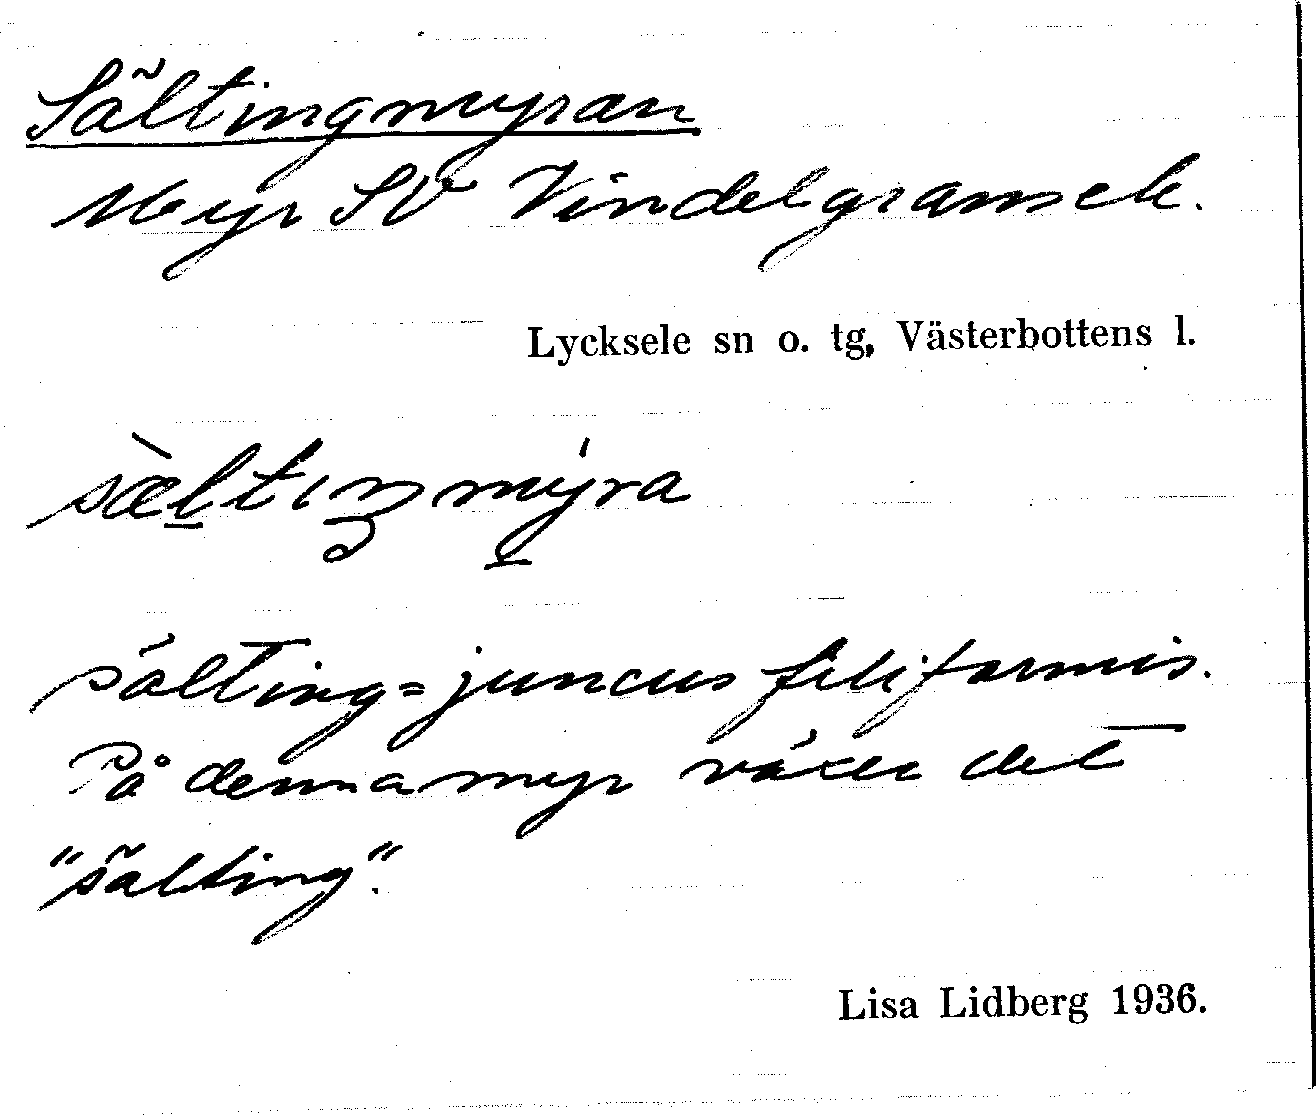 Sältingmyran
Myr SV Vindelgransele.
Lycksele sn o. tg, Västerbottens l.
sæltıŋmýra
sälting = juncus filiformis.
På denna myr växer det
"sälting".
Lisa Lidberg 1936.